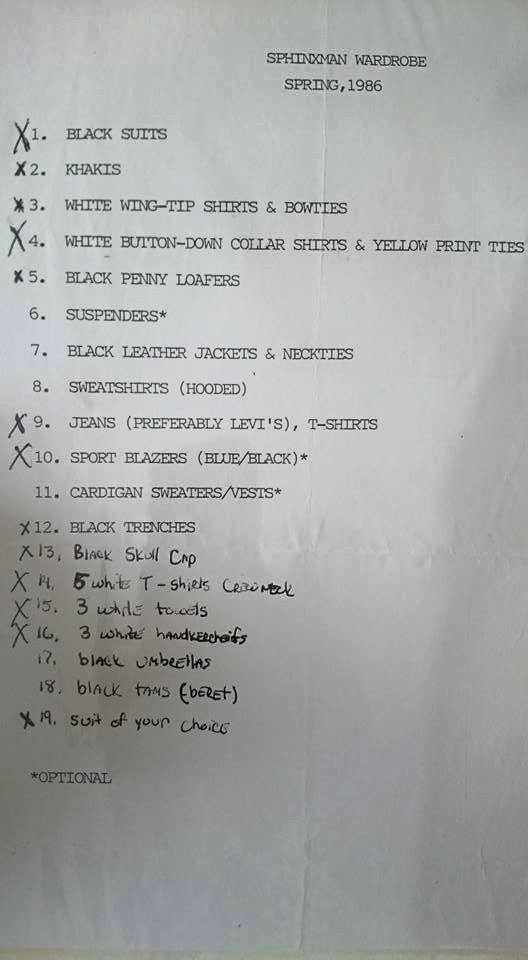 SPHINXMAN WARDROBE
SPRING,1986
X 1. BLACK SUITS
X 2. KHAKIS
X 3. WHITE WING-TIP SHIRTS & BOWTIES
X 4. WHITE BUTTON-DOWN COLLAR SHIRTS & YELLOW PRINT TIES
X 5. BLACK PENNY LOAFERS
6. SUSPENDERS*
7. BLACK LEATHER JACKETS & NECKTIES
8. SWEATSHIRTS (HOODED)
X 9. JEANS (PREFERABLY LEVI'S), T-SHIRTS
X 10. SPORT BLAZERS (BLUE/BLACK)*
11. CARDIGAN SWEATERS/VESTS*
X 12. BLACK TRENCHES
X 13. Black Skull Cap
X 14. 5 white T-shirts Crewneck
X 15. 3 white towels
X 16. 3 white handkercheifs
17. black umbrellas
18. black tams (beret)
X 19. suit of your choice
*OPTIONAL